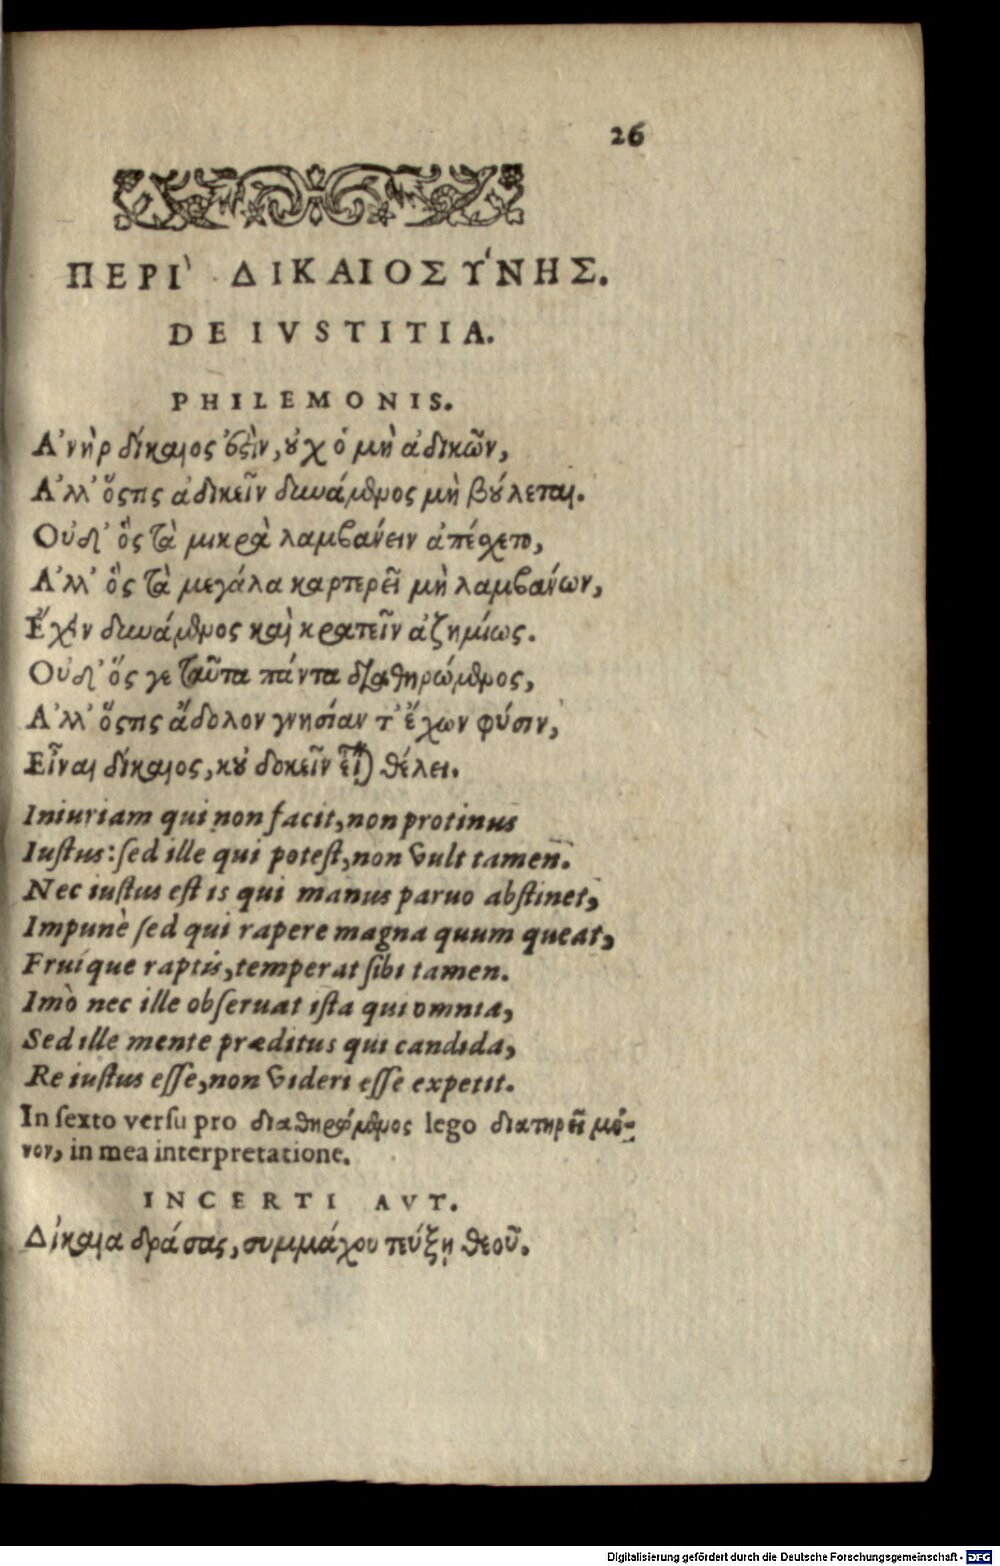 26
ΠΕΡΙ` ΔΙΚΑΙΟΣΥ΄ΝΗΣ.
DE IVSTITIA.
PHILEMONIS.
Α᾿νὴρ δίκαιος ἐςὶν, ȣ̓χ ὁ μὴ ἀδικῶν,
Α᾿λλ᾿ ὅςτις ἀδικεῖν δυνάμενος μὴ βȣ́λεται.
Οὐδ᾿ ὃς τὰ μικρὰ λαμβάνειν ἀπέχετο,
Α᾿λλ᾿ ὃς τὰ μεγάλα καρτερεῖ μὴ λαμβάνων,
Ἔχειν δυνάμενος καὶ κρατεῖν ἀζημίως.
Οὐδ᾿ ὅς γε ταῦτα πάντα διαθηρώμενος,
Α᾿λλ᾿ ὅςτις ἄδολον γνησίαν τ᾿ ἔχων φύσιν,
Εἶναι δίκαιος, κȣ̓ δοκεῖν εἶναι θέλει.
Iniuriam qui non facit, non protinus
Iuſtus: ſed ille qui poteſt, non vult tamen.
Nec iuſtus eſt is qui manus paruo abſtinet,
Impunè ſed qui rapere magna quum queat,
Fruíque raptis, temperat ſibi tamen.
Imò nec ille obſeruat iſta qui omnia,
Sed ille mente præditus qui candida,
Re iuſtus eſſe, non videri eſſe expetit.
In ſexto verſu pro διαθηρώμενος lego διατηρεῖ μό-
νον, in mea interpretatione.
INCERTI AVT.
Δίκαια δράσας, συμμάχου τεύξῃ θεοῦ.
Digitalisierung gefördert durch die Deutsche Forschungsgemeinschaft - DFG